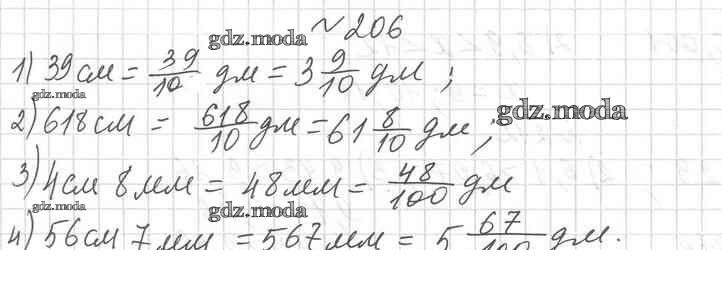 № 206
gdz.moda
1) 39 см = 39/10 дм = 3 9/10 дм ;
gdz.moda
2) 618 см = 618/10 дм = 61 8/10 дм ;
gdz.moda
3) 4 см 8 мм = 48 мм = 48/100 дм
gdz.moda
gdz.moda
4) 56 см 7 мм = 567 мм = 5 67/100 дм.